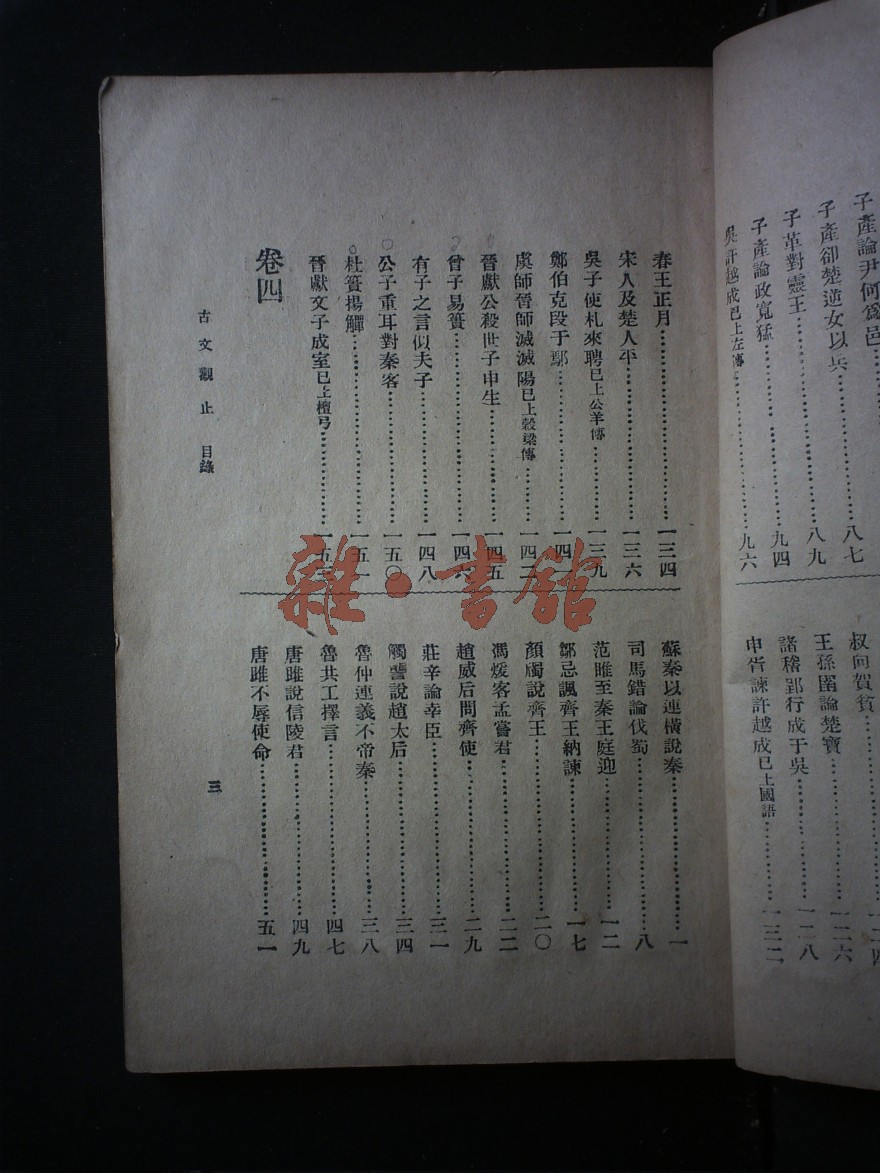 子產論尹何爲邑
子產卻楚逆女以兵……八七
子革對靈王……八九
子產論政寬猛……九四
吳許越成已上左傳……九六
叔向賀貧
王孫圉論楚寶……一二六
諸稽郢行成于吳……一二八
申胥諫許越成已上國語……一三二
春王正月……一三四
宋人及楚人平……一三六
吳子使札來聘已上公羊傳……一三九
鄭伯克段于鄢……一四一
虞師晉師滅夏陽已上穀梁傳……一四二
晉獻公殺世子申生……一四五
曾子易簀……一四六
有子之言似夫子……一四八
公子重耳對秦客……一五〇
杜簣揚觶……一五一
晉獻文子成室已上檀弓……一五三
卷四
蘇秦以連橫說秦……一
司馬錯論伐蜀……八
范雎至秦王庭迎……一二
鄒忌諷齊王納諫……一七
顏斶說齊王……二〇
馮煖客孟嘗君……二二
趙威后問齊使……二九
莊辛論幸臣……三一
觸讋說趙太后……三四
魯仲連義不帝秦……三八
魯共工擇言……四七
唐雎說信陵君……四九
唐雎不辱使命……五一
古文觀止 目錄
三
雜·書館